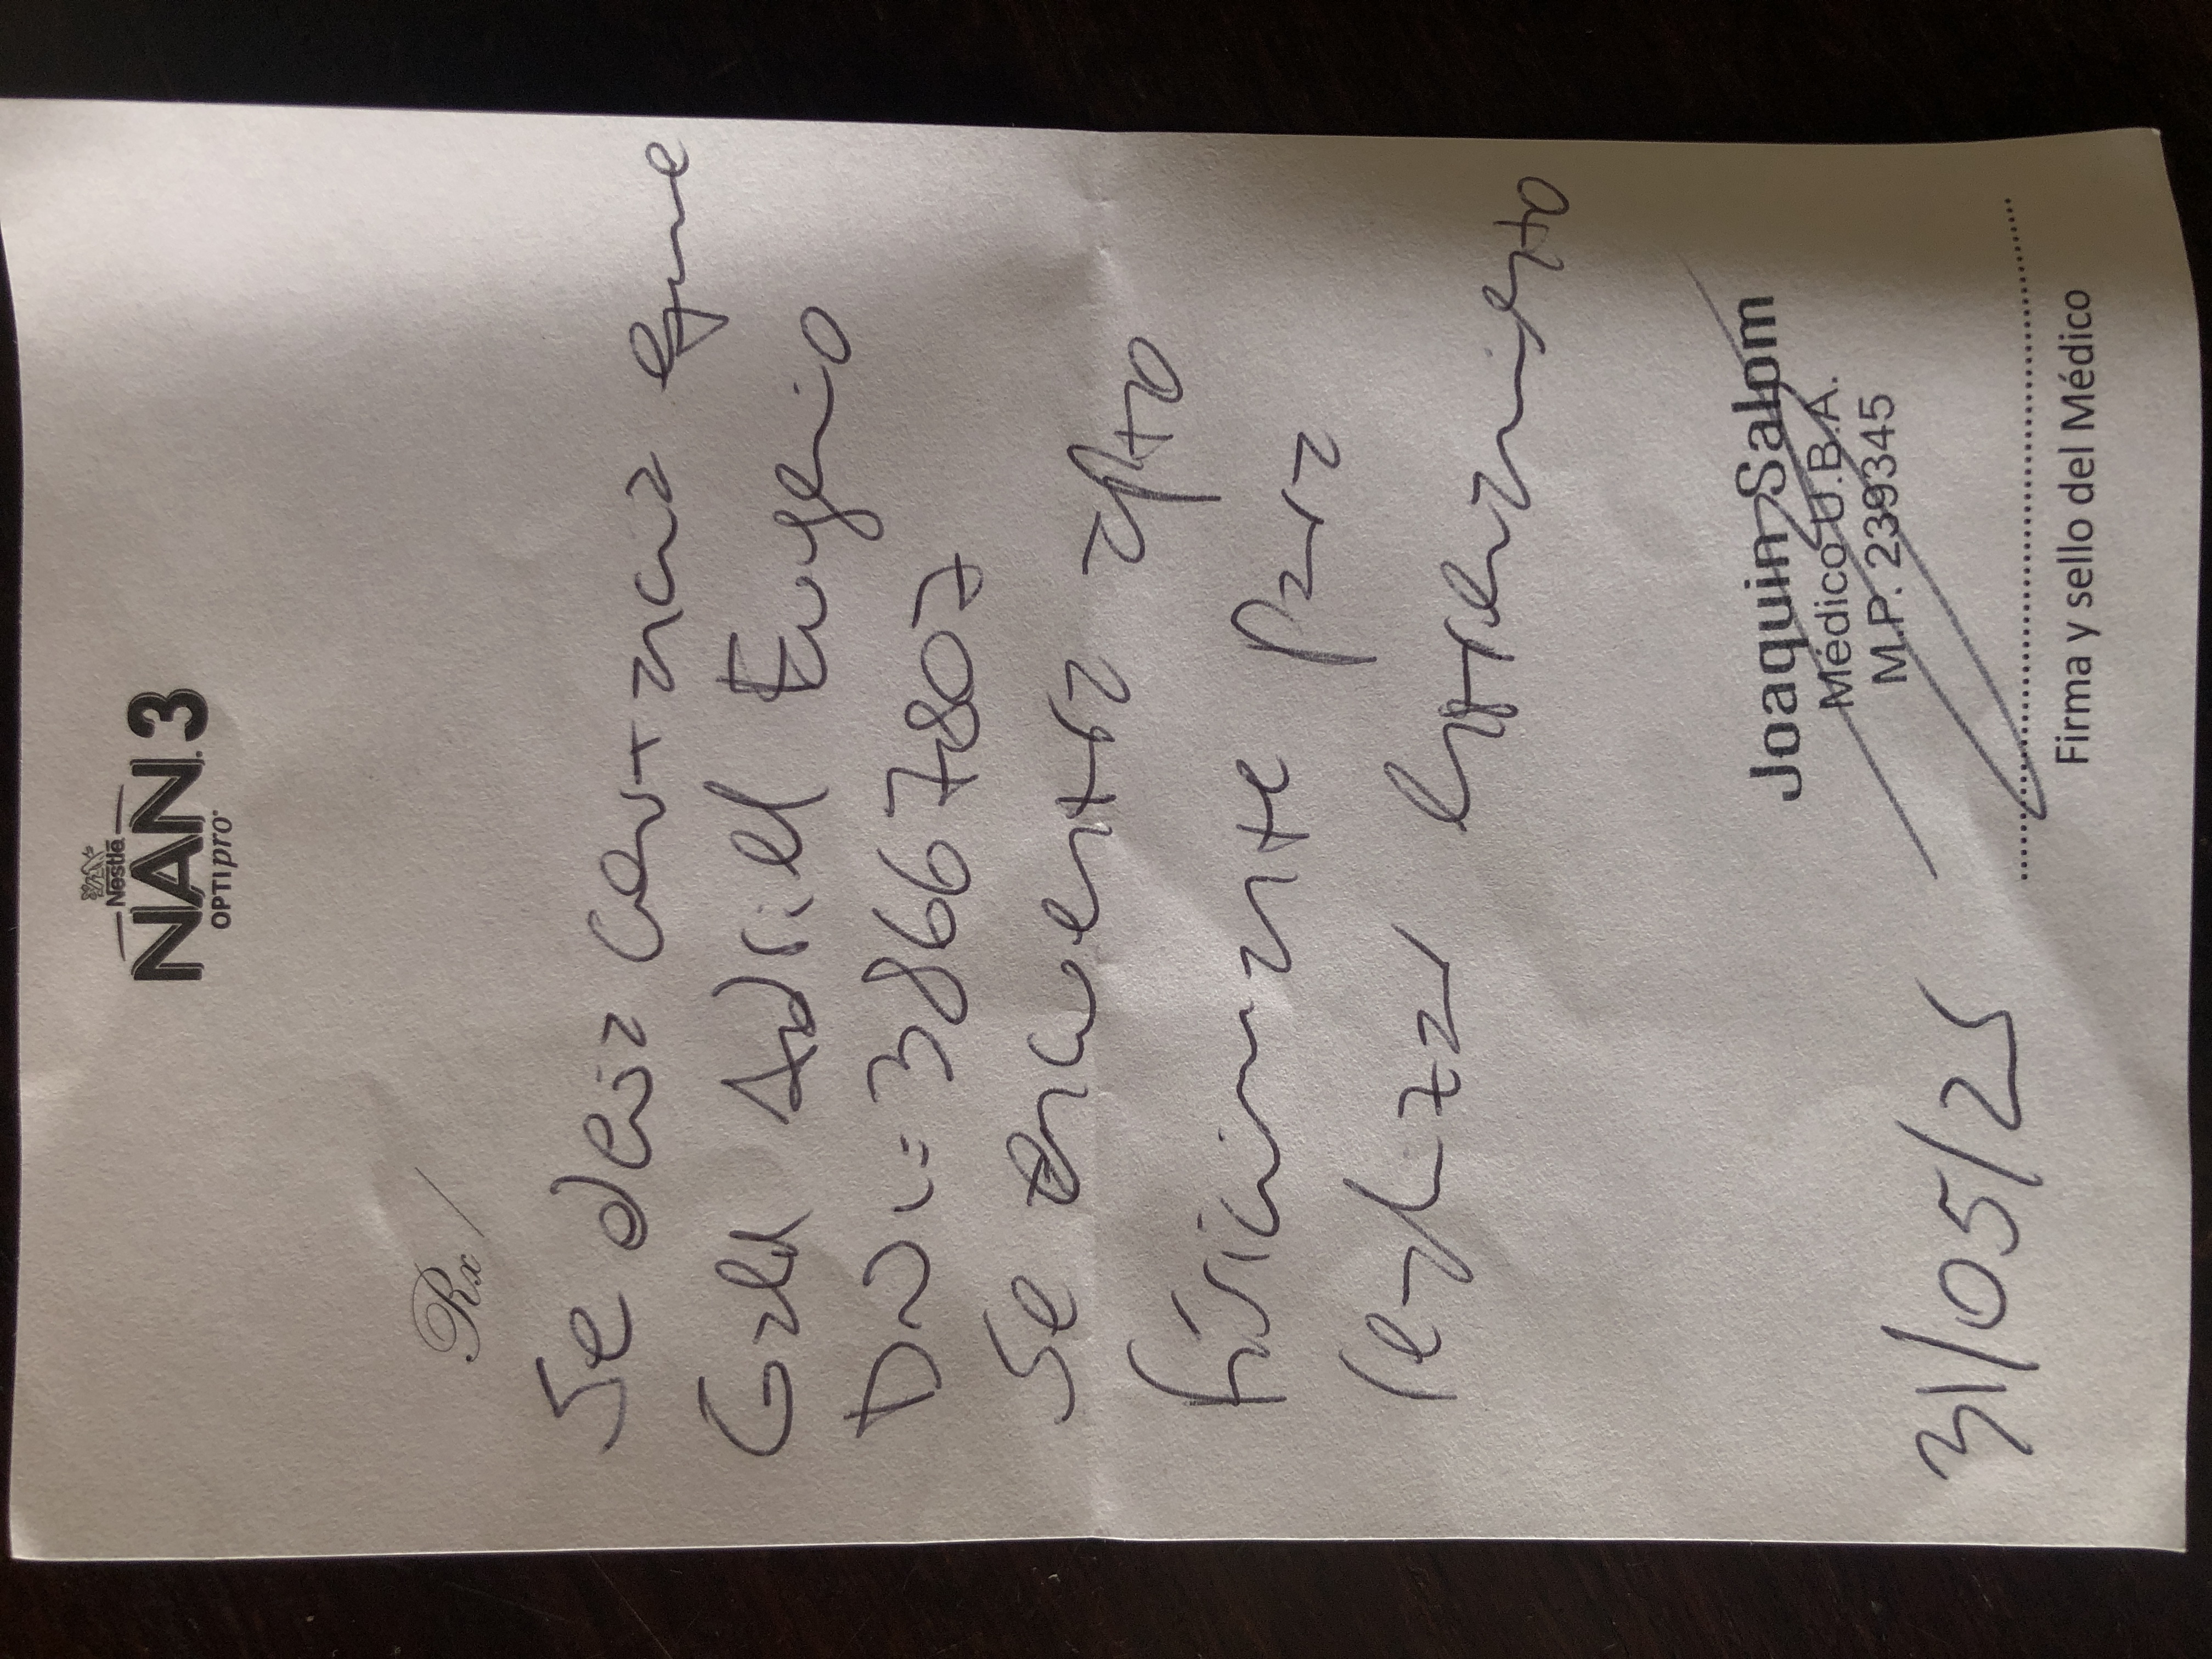 Nestlé
NAN. 3
OPTIpro
Rx/
Se deja constancia que
Gald Adriel Eugenio
DNI: 38667807
Se encuentra apto
físicamente para
realizar entrenamiento
Joaquin Salom
Médico U.B.A.
M.P. 239345
31/05/25
Firma y sello del Médico